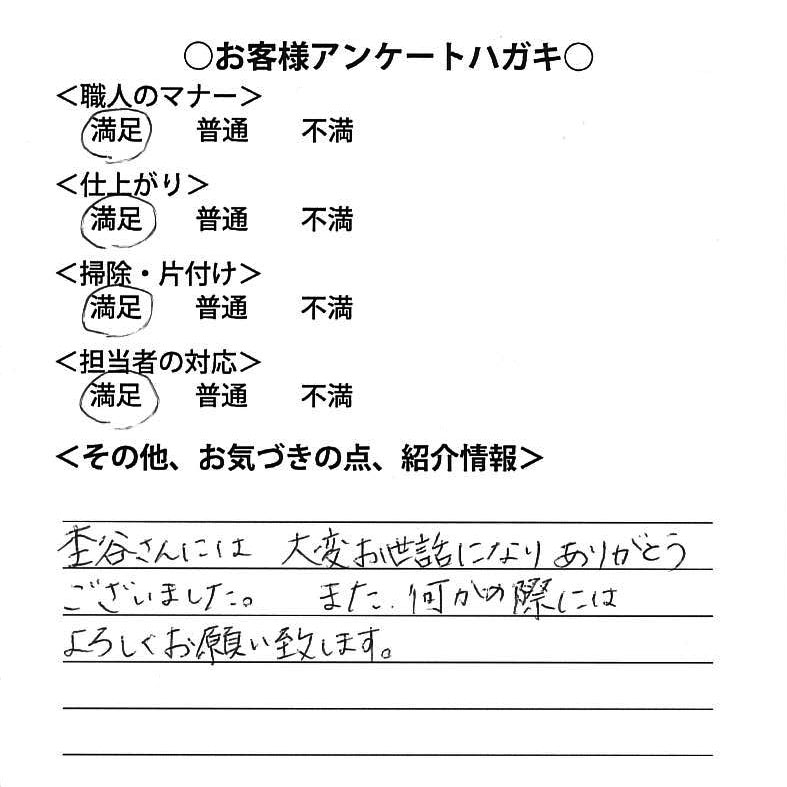 ○お客様アンケートハガキ○
＜職人のマナー＞
満足 普通 不満
＜仕上がり＞
満足 普通 不満
＜掃除・片付け＞
満足 普通 不満
＜担当者の対応＞
満足 普通 不満
＜その他、お気づきの点、紹介情報＞
杢谷さんには 大変お世話になりありがとう
ございました。 また、何かの際には
よろしくお願い致します。